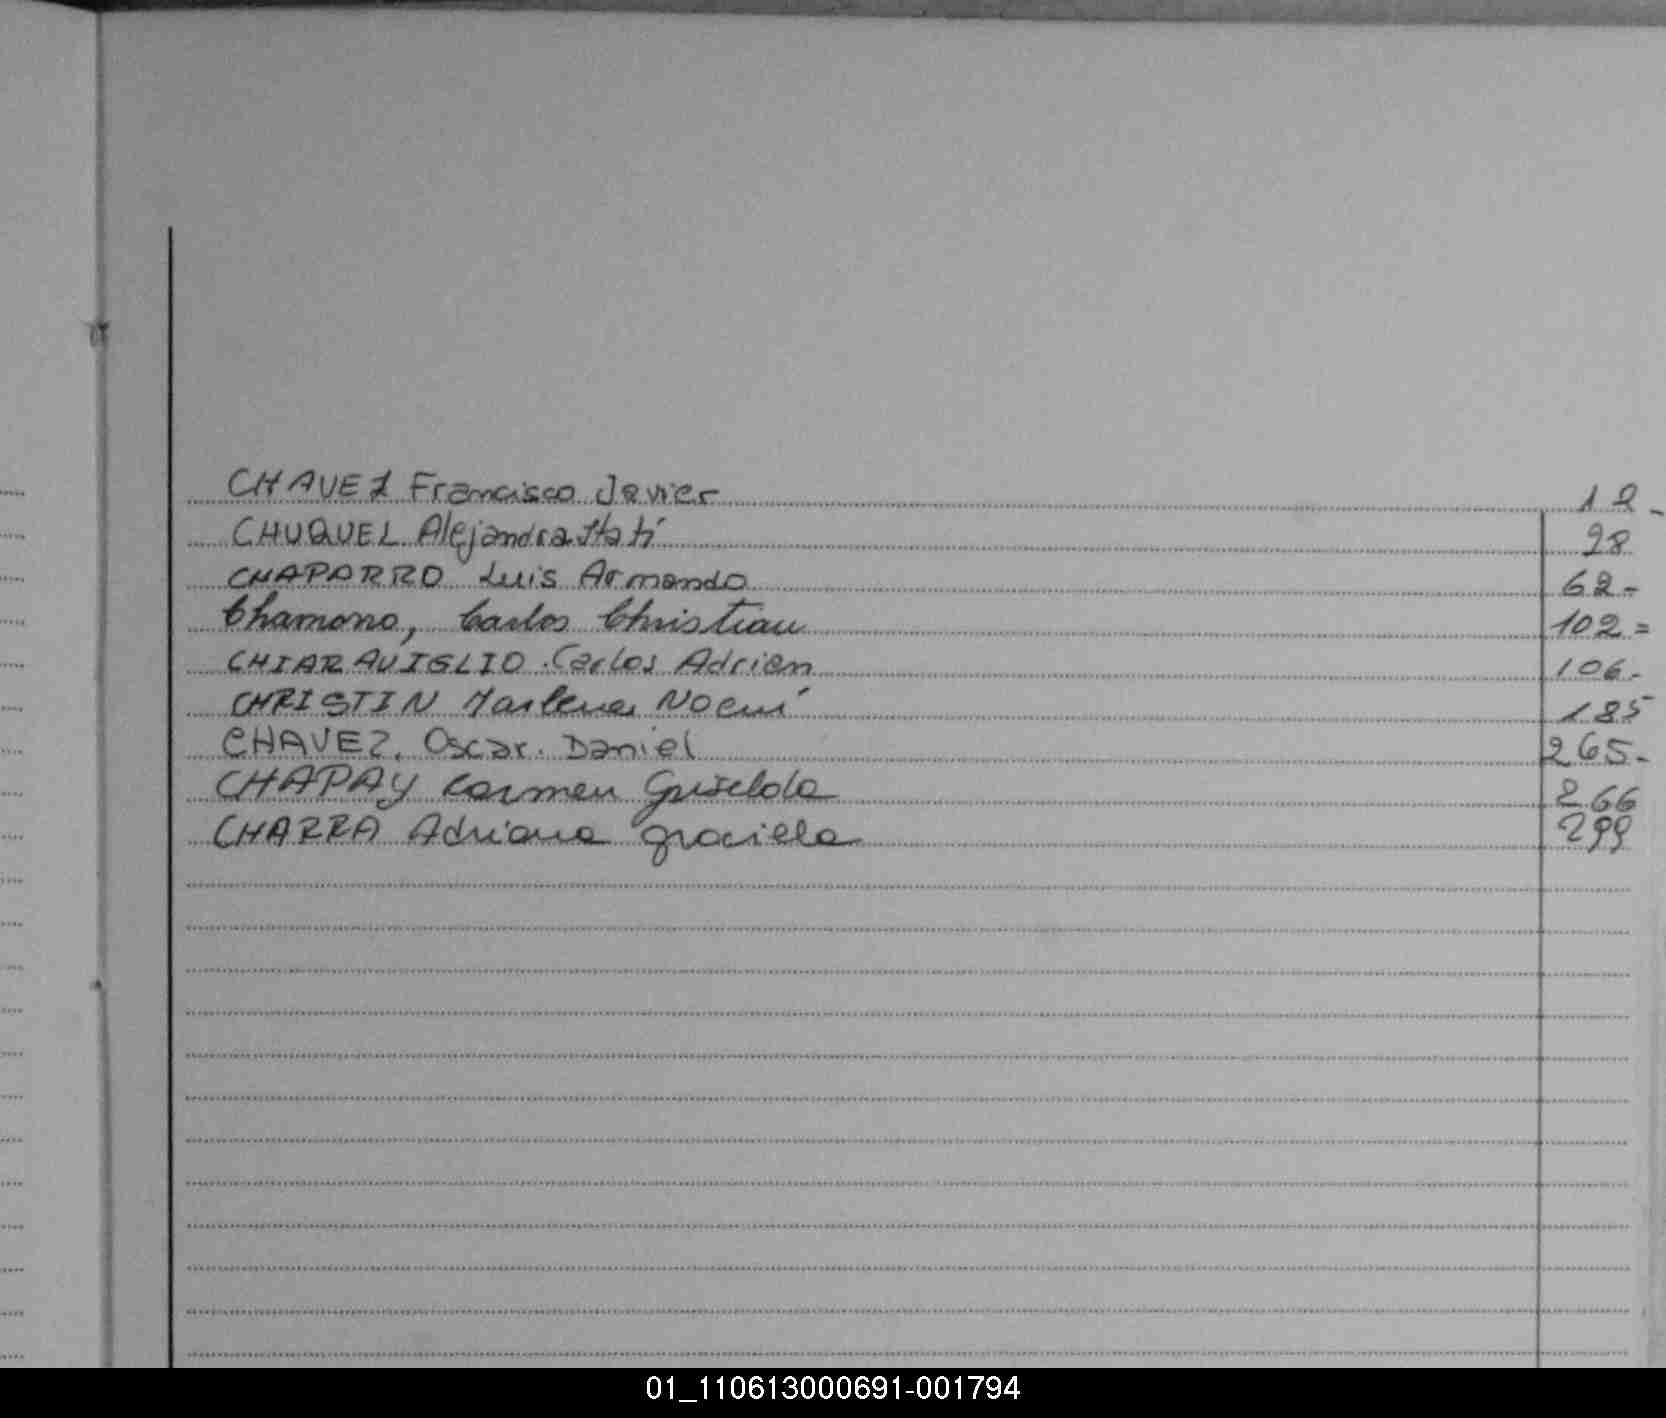 CHAVEZ Francisco Javier 12-
CHUQUEL Alejandra Itatí 28
CHAPARRO Luis Armando 62-
Chamono, Carlos Christian 102=
CHIARAVIGLIO Carlos Adrian 106-
CHRISTIN Marlene Noemí 185
CHAVEZ, Oscar. Daniel 265-
CHAPAY Carmen Griselda 266
CHARRA Adriana Graciela 299
01_110613000691-001794